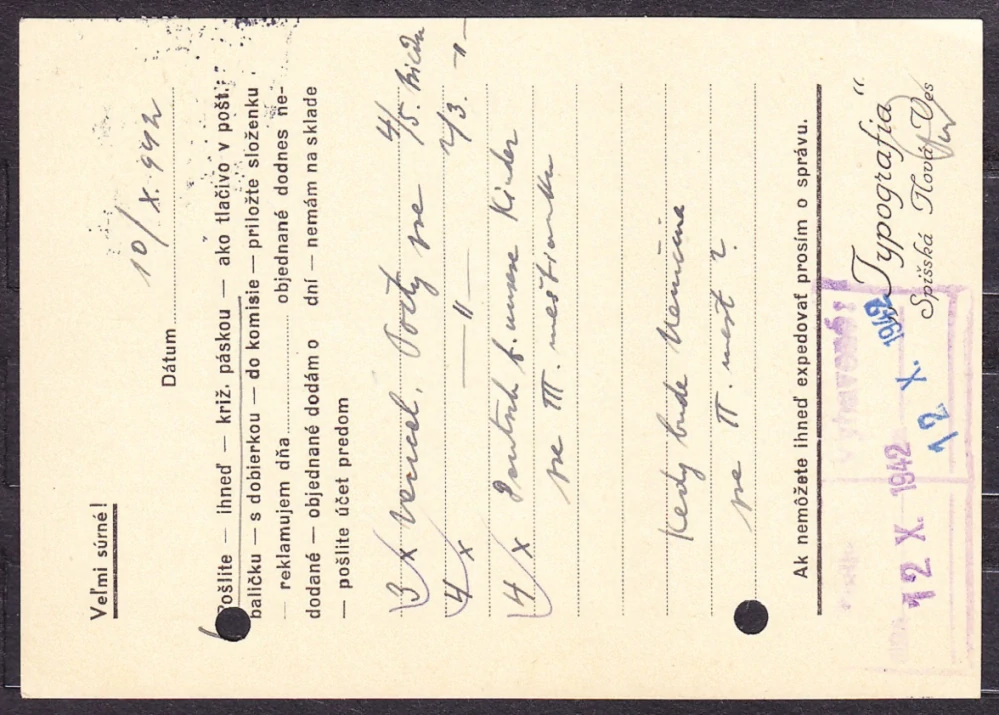 Veľmi súrné!
Dátum 10/X. 942
Pošlite — ihneď — kríž. páskou — ako tlačivo v pošt.
balíčku — s dobierkou — do komisie — priložte složenku
— reklamujem dňa objednané dodnes ne-
dodané — objednané dodám o dní — nemám na sklade
— pošlite účet predom
3 x Počty pre 4/5.
4 x — " — 2/3. - " -
4 x Deutsch f. unsere Kinder
pre III. meštianku
Kedy bude Nemčina
pre II. mešt?
Ak nemôžete ihneď expedovať prosím o správu.
„Typografia“
Spišská Nová Ves
12. X. 1942
Vybavené:
12 X. 1942